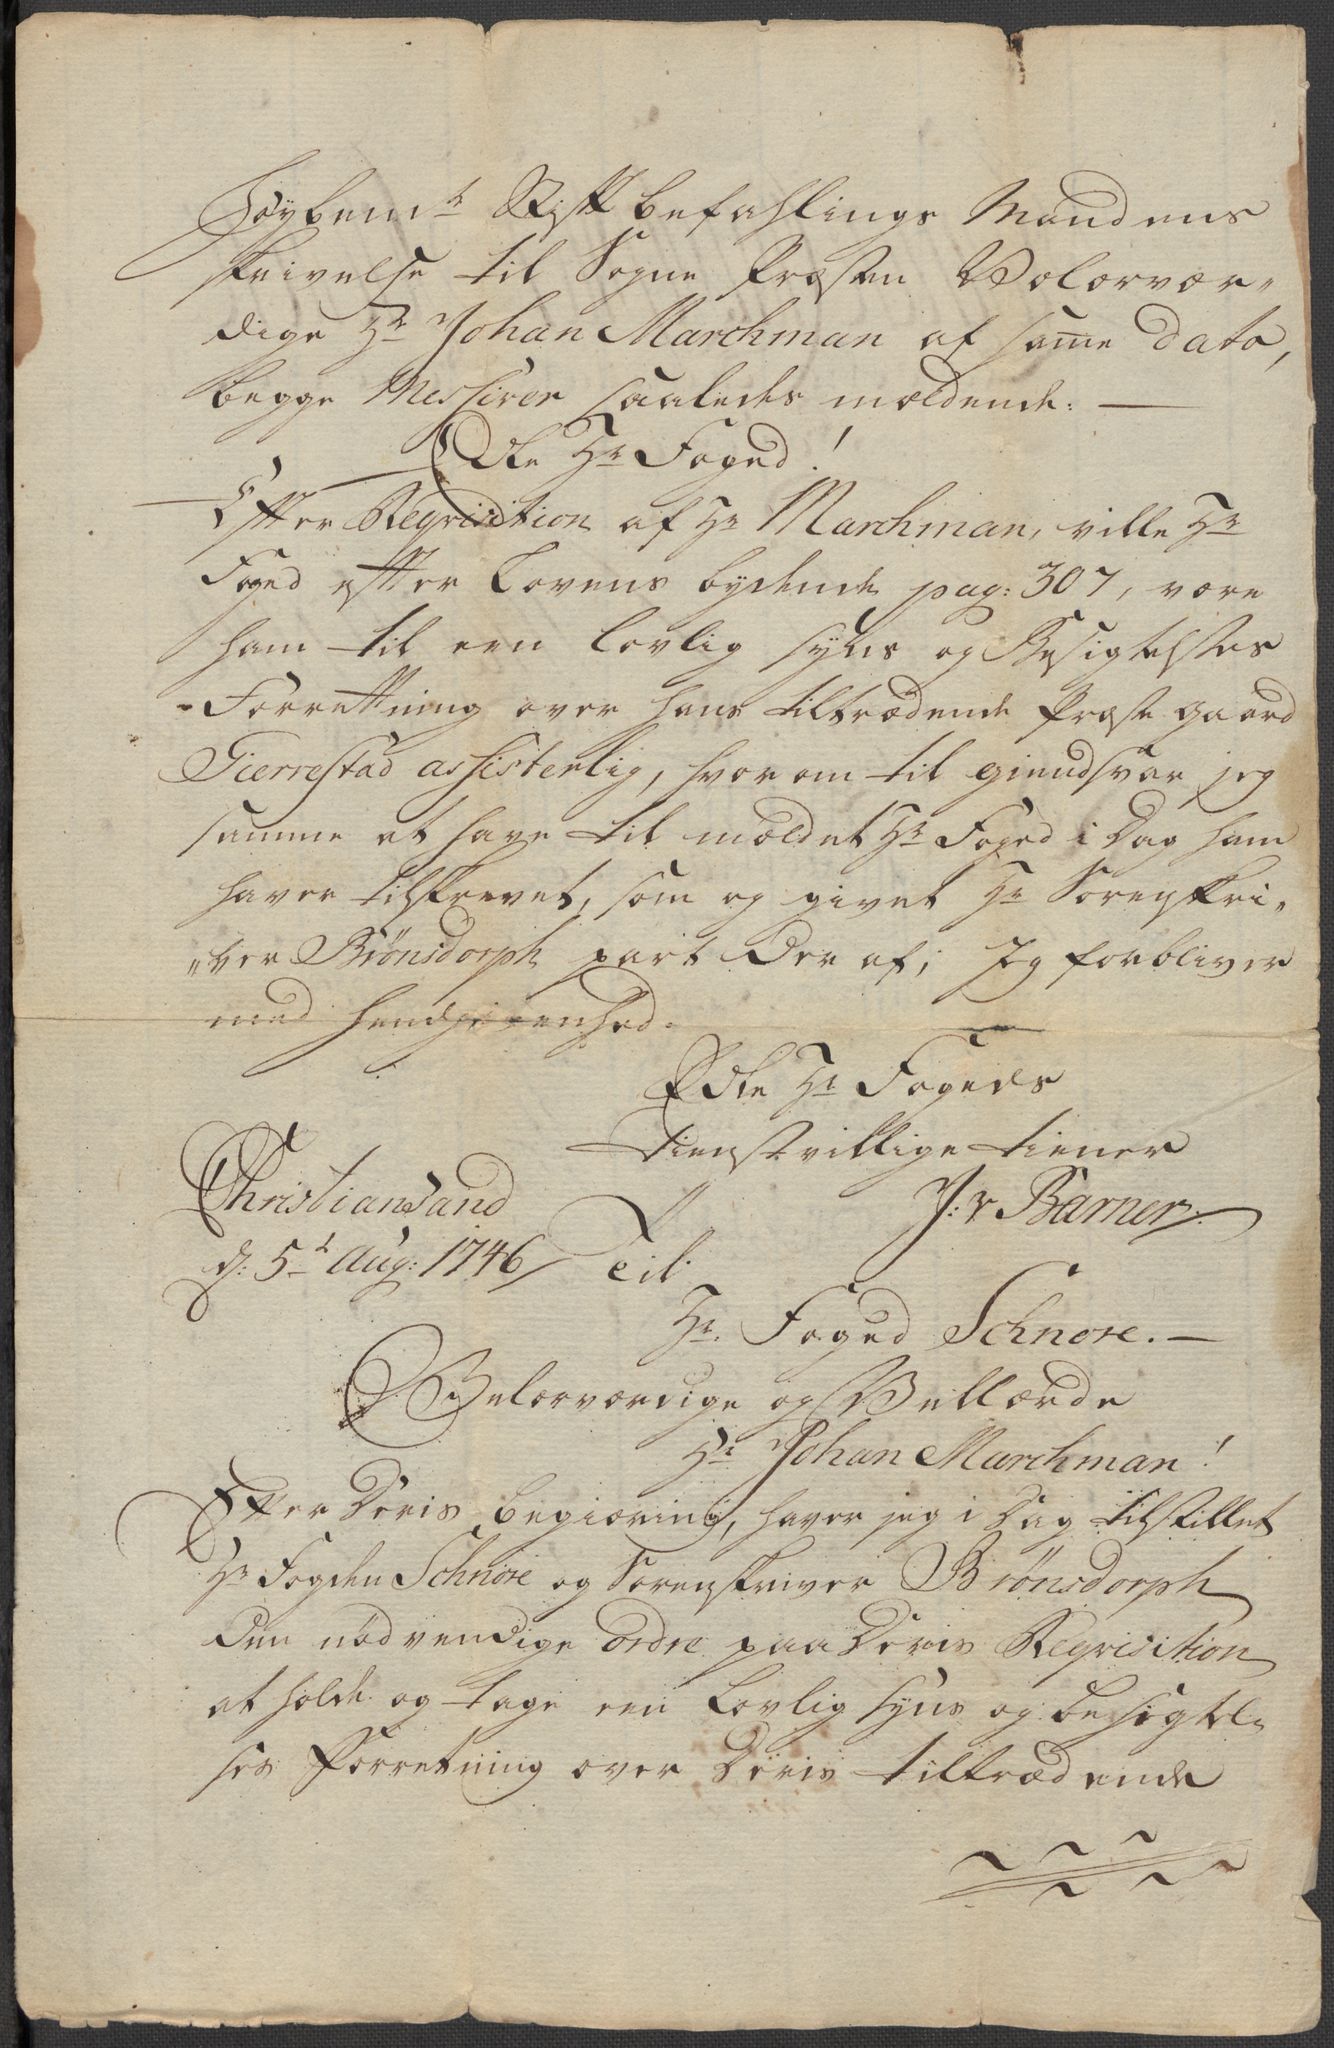 Høybem.te Stift befahlings Mandens
skrivelse til Sogne Præsten Velærvær-
dige Hr Johan Marchman af same dato,
begge Messiver saaledes meldende: —
Edle Hr Foged!
Efter Reqvisition af Hr Marchman, ville Hr
Foged efter Lovens bydende pag: 307, være
ham til een Lovlig Syns og Besigtelses
Forrettning over hans tiltrædende Præstegaard
Gierrestad assisterlig, hvorom til giendsvar jeg
samme at have tilmeldet Hr Foged i Dag ham
haver tilskrevet, som og givet Hr Sorenskri-
"ver Brönsdorph part der af; Jeg forbliver
med hengivenhed.
Edle Hr Fogeds
tienstvillige tiener
Christiansand J: v Barner.
d: 5t Aug: 1746 / Til
Hr. Foged Schnore. —
Velærværdige og Vellærde
Hr Johan Marchman!
Efter Deris begiæring, haver jeg i Dag tilstillet
Hr Fogden Schnore og Sorenskriver Brönsdorph
den nødvendige ordre paa Deris Reqvisition
at holde og tage een Lovlig Syns og besigtel-
ses Forretning over Deris tiltrædende